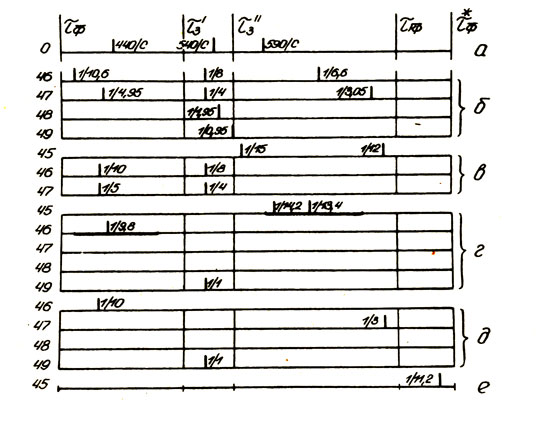 τф τ₃' τ₃'' τкф τ*ф
0 440/C 540/C 590/C а
46 1/10,6 1/8 1/6,6
47 1/4,95 1/4 1/3,05 б
48 1/1,95
49 1/0,95
45 1/15 1/12
46 1/10 1/8 в
47 1/5 1/4
45 1/14,2 1/13,4
46 1/9,8
47 г
48
49 1/1
46 1/10
47 1/3 д
48
49 1/1
45 1/11,2 е